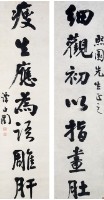 細觀初以指畫肚
熙園先生正之
瘦生應為語雕肝
譚延闓